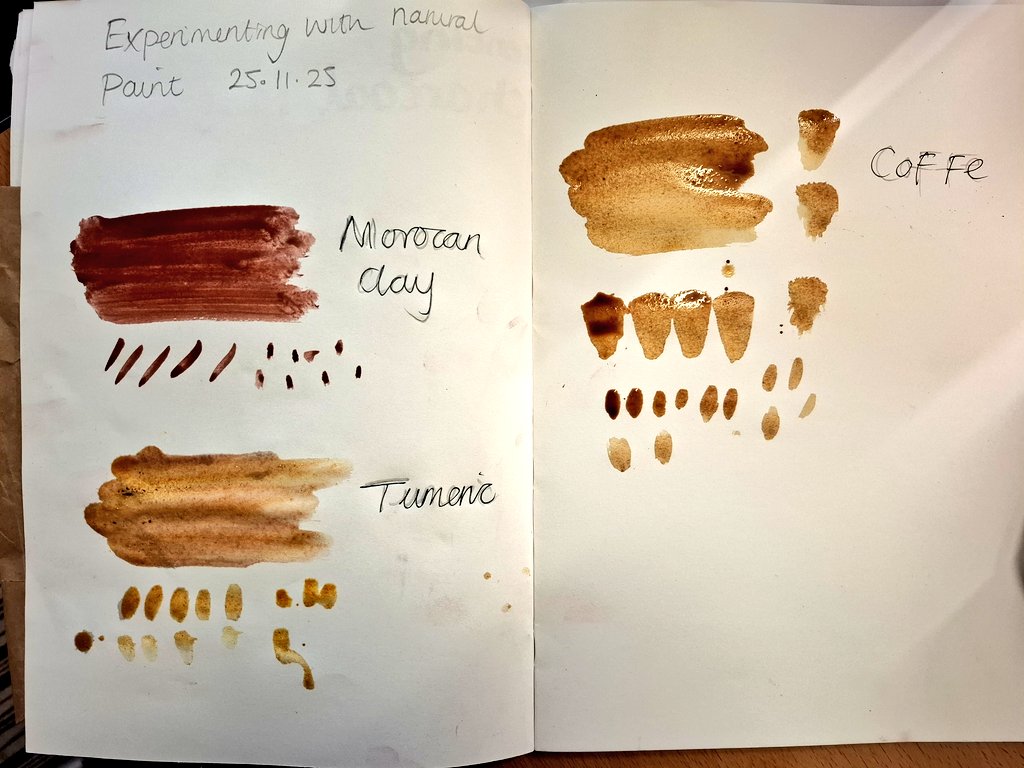 Experimenting with natural
Paint 25.11.25
Morocan
clay
Tumeric
Coffe